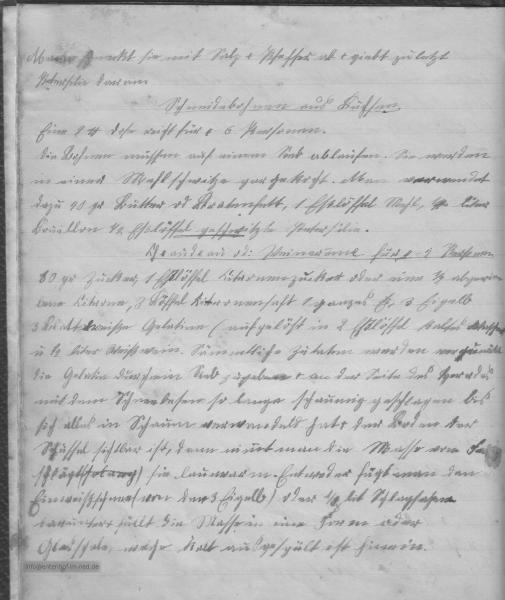 Man schmeckt sie mit Salz & Pfeffer ab & giebt zuletzt
Petersilie daran
Schneidebohnen aus Büchsen
Eine 2 ℔ Dose reicht für 6 Personen.
Die Bohnen müssen auf einem Sieb ablaufen. Sie werden
in einer Mehlschwitze gar gekocht. Man verwendet
dazu 40 gr Butter od Bratenfett, 1 Eßlöffel Mehl, Liter
Bouillon ½ Eßlöffel gewiegte Petersilie.
od: Weincreme für Personen
80 gr Zucker, 1 Eßlöffel Citronenzucker oder eine ½ abgerie
bene Citrone, 2 Löffel Citronensaft 1 ganzes Ei, 3 Eigelb
3 Blatt weiße Gelatine (aufgelöst in 2 Eßlöffel
u ½ Liter Weißwein. Sämmtliche Zutaten werden
die Gelatine durch ein Sieb gegeben & an der Seite des Herdes
mit dem Schneebesen so lange schaumig geschlagen bis
sich alles in Schaum verwandelt hat & der Boden der
Schüssel sichtbar ist, dann nimmt man die Masse vom
sie lauwarm. Entweder fügt man den
Eiweißschnee von den 3 Eigelb) oder ¼ lit Schlagsahne
darunter & füllt die Masse in eine Form oder
Glasschale, welche kalt ausgespült ist hinein.
info@ententipfilm-ned.de